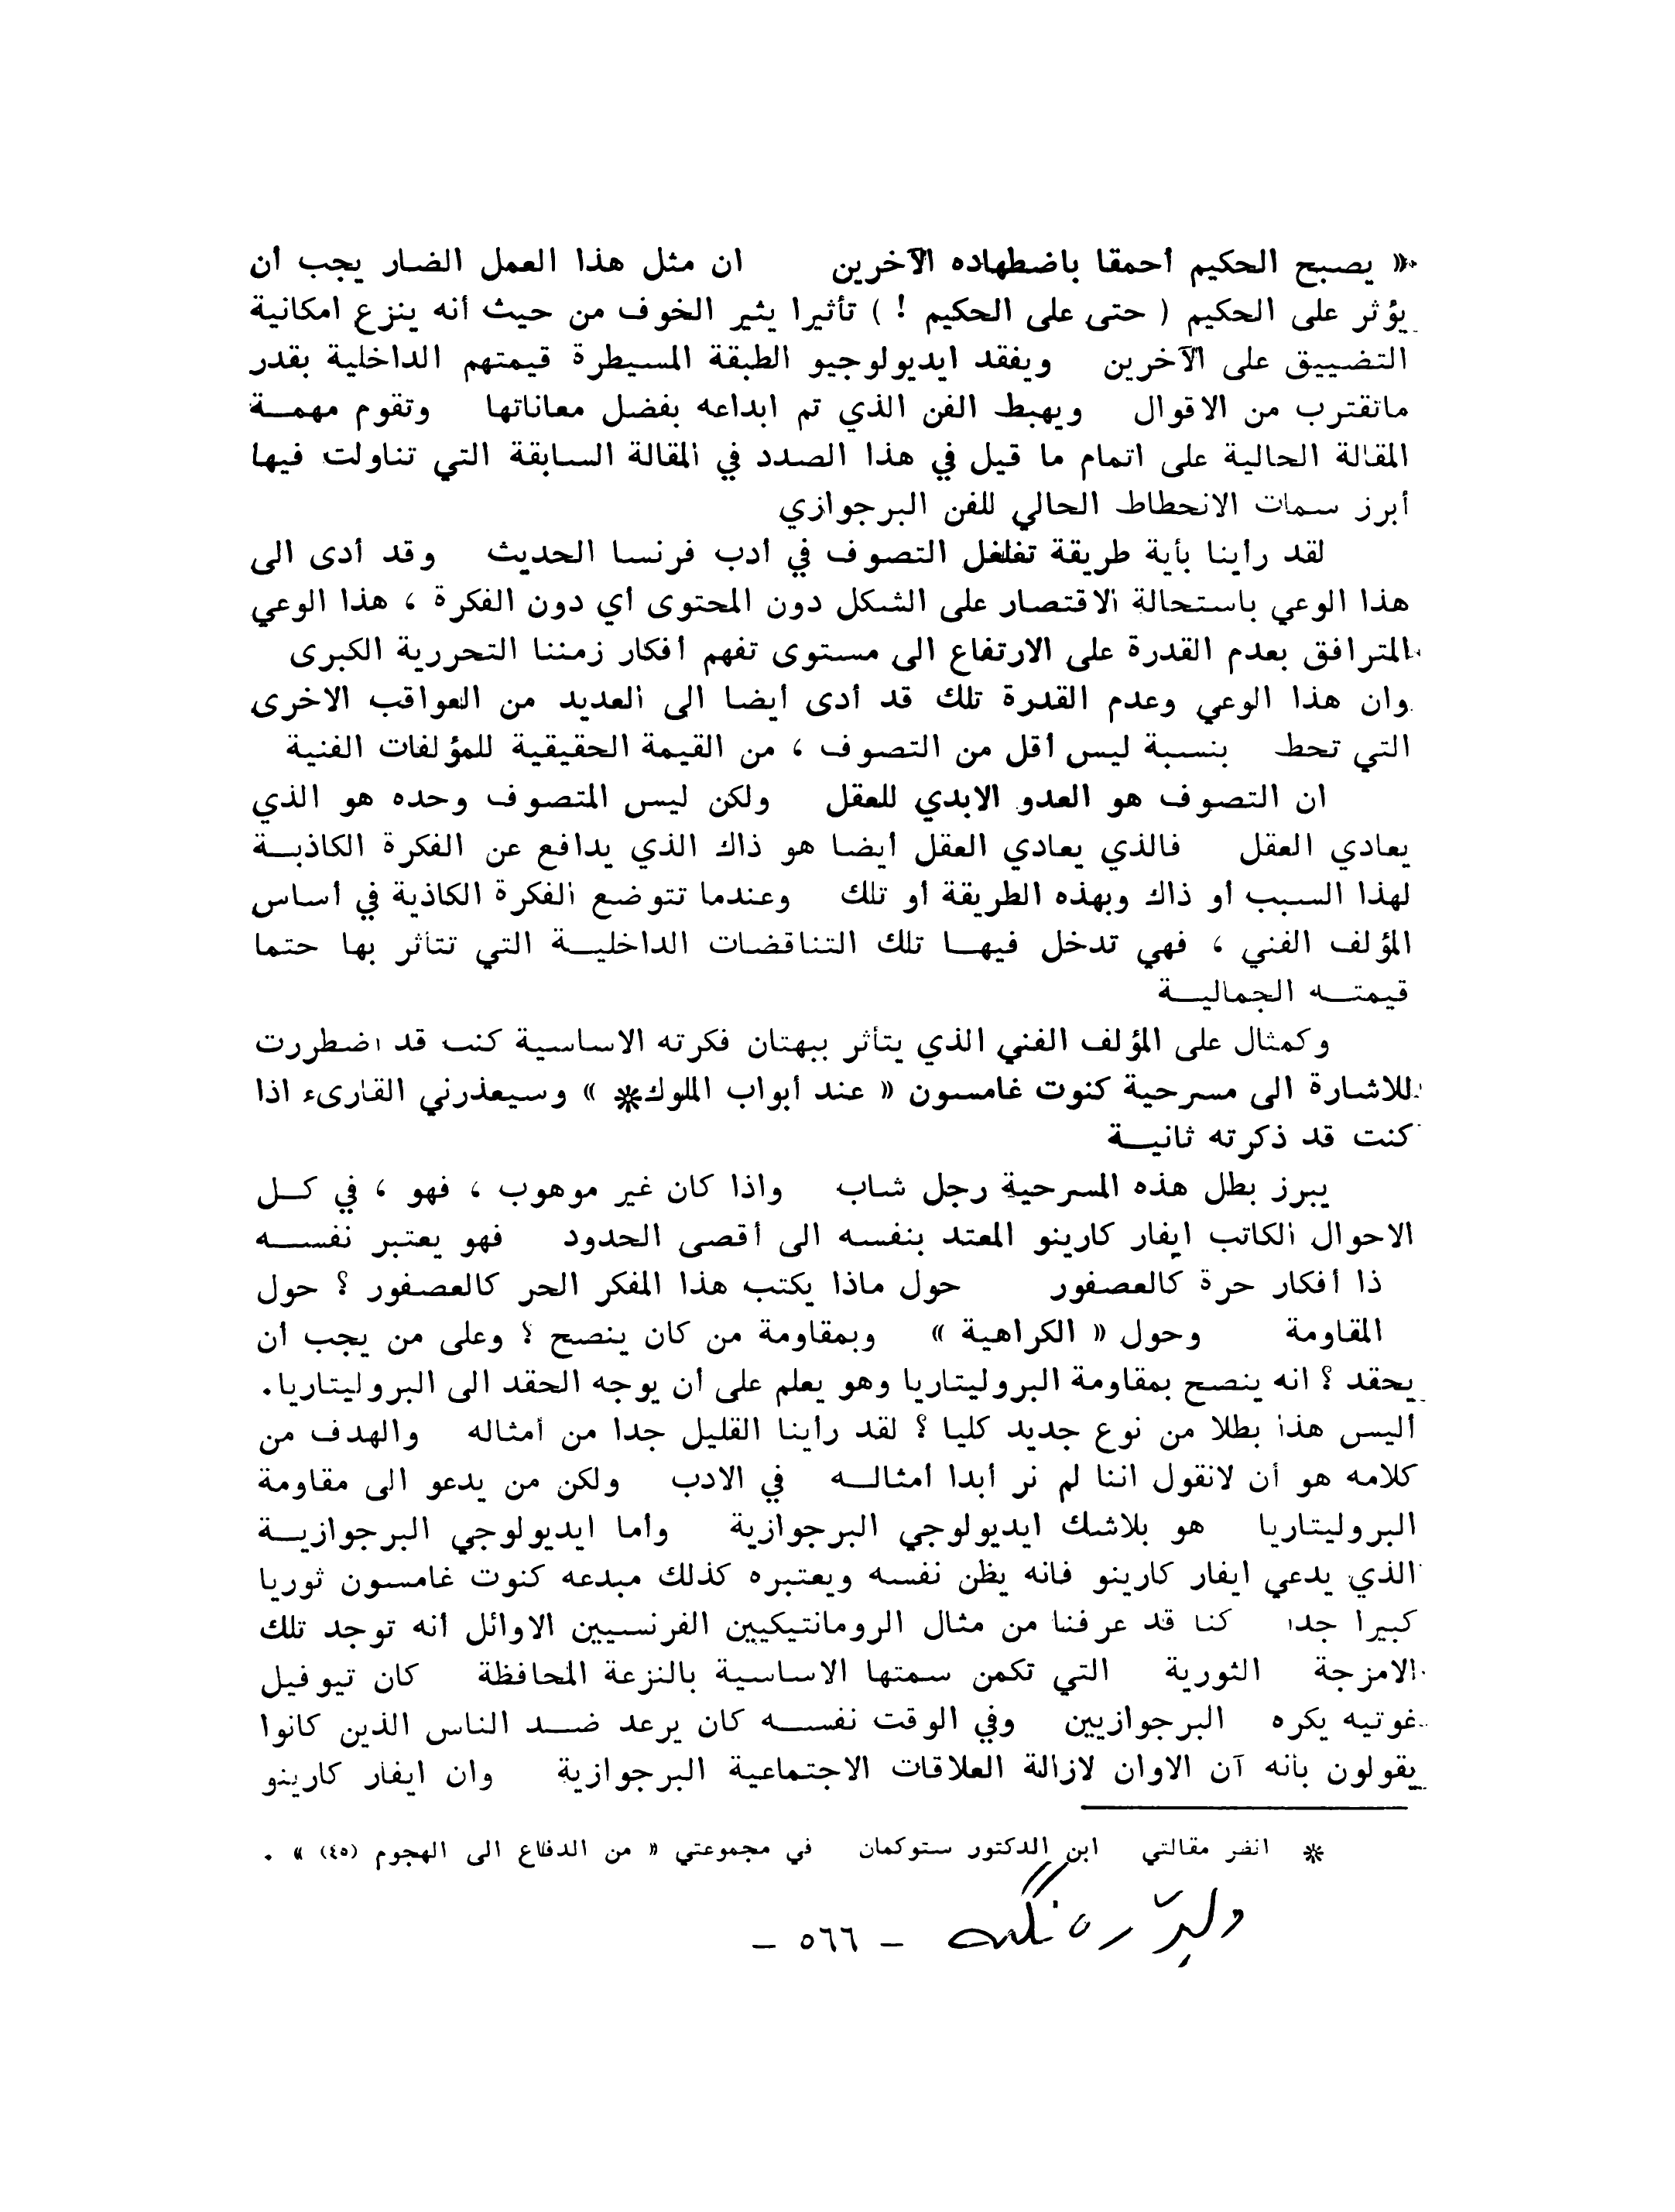 « يصبح الحكيم أحمقا باضطهاده الآخرين ان مثل هذا العمل الضار يجب أن
يؤثر على الحكيم ( حتى على الحكيم ! ) تأثيرا يثير الخوف من حيث أنه ينزع امكانية
التضييق على الآخرين ويفقد ايديولوجيو الطبقة المسيطرة قيمتهم الداخلية بقدر
ماتقترب من الاقوال ويهبط الفن الذي تم ابداعه بفضل معاناتها وتقوم مهمــة
المقالة الحالية على اتمام ما قيل في هذا الصدد في المقالة السابقة التي تناولت فيها
أبرز سمات الانحطاط الحالي للفن البرجوازي
لقد رأينا بأية طريقة تغلغل التصوف في أدب فرنسا الحديث وقد أدى الى
هذا الوعي باستحالة الاقتصار على الشكل دون المحتوى أي دون الفكرة ، هذا الوعي
المترافق بعدم القدرة على الارتفاع الى مستوى تفهم أفكار زمننا التحررية الكبرى
وان هذا الوعي وعدم القدرة تلك قد أدى أيضا الى العديد من العواقب الاخرى
التي تحط بنسبة ليس أقل من التصوف ، من القيمة الحقيقية للمؤلفات الفنية
ان التصوف هو العدو الابدي للعقل ولكن ليس المتصوف وحده هو الذي
يعادي العقل فالذي يعادي العقل أيضا هو ذاك الذي يدافع عن الفكرة الكاذبــة
لهذا السبب أو ذاك وبهذه الطريقة أو تلك وعندما تتوضع الفكرة الكاذبة في أساس
المؤلف الفني ، فهي تدخل فيهــا تلك التناقضات الداخليــة التي تتأثر بها حتما
قيمتــه الجماليــة
وكمثال على المؤلف الفني الذي يتأثر ببهتان فكرته الاساسية كنت قد اضطررت
للاشارة الى مسرحية كنوت غامسون « عند أبواب الملوك* » وسيعذرني القارىء اذا
كنت قد ذكرته ثانيــة
يبرز بطل هذه المسرحية رجل شاب واذا كان غير موهوب ، فهو ، في كــل
الاحوال الكاتب ايفار كارينو المعتد بنفسه الى أقصى الحدود فهو يعتبر نفســه
ذا أفكار حرة كالعصفور حول ماذا يكتب هذا المفكر الحر كالعصفور ؟ حول
المقاومة وحول « الكراهية » وبمقاومة من كان ينصح ؟ وعلى من يجب أن
يحقد ؟ انه ينصح بمقاومة البروليتاريا وهو يعلم على أن يوجه الحقد الى البروليتاريا.
أليس هذا بطلا من نوع جديد كليا ؟ لقد رأينا القليل جدا من أمثاله والهدف من
كلامه هو أن لانقول اننا لم نر أبدا أمثالــه في الادب ولكن من يدعو الى مقاومة
البروليتاريا هو بلاشك ايديولوجي البرجوازية وأما ايديولوجي البرجوازيــة
الذي يدعي ايفار كارينو فانه يظن نفسه ويعتبره كذلك مبدعه كنوت غامسون ثوريا
كبيرا جدا كنا قد عرفنا من مثال الرومانتيكيين الفرنسيين الاوائل أنه توجد تلك
الامزجة الثورية التي تكمن سمتها الاساسية بالنزعة المحافظة كان تيوفيل
غوتيه يكره البرجوازيين وفي الوقت نفســه كان يرعد ضــد الناس الذين كانوا
يقولون بأنه آن الاوان لازالة العلاقات الاجتماعية البرجوازية وان ايفار كارينو
* انضر مقالتي ابن الدكتور ستوكمان في مجموعتي « من الدفاع الى الهجوم (٤٥) » .
– ٥٦٦ –